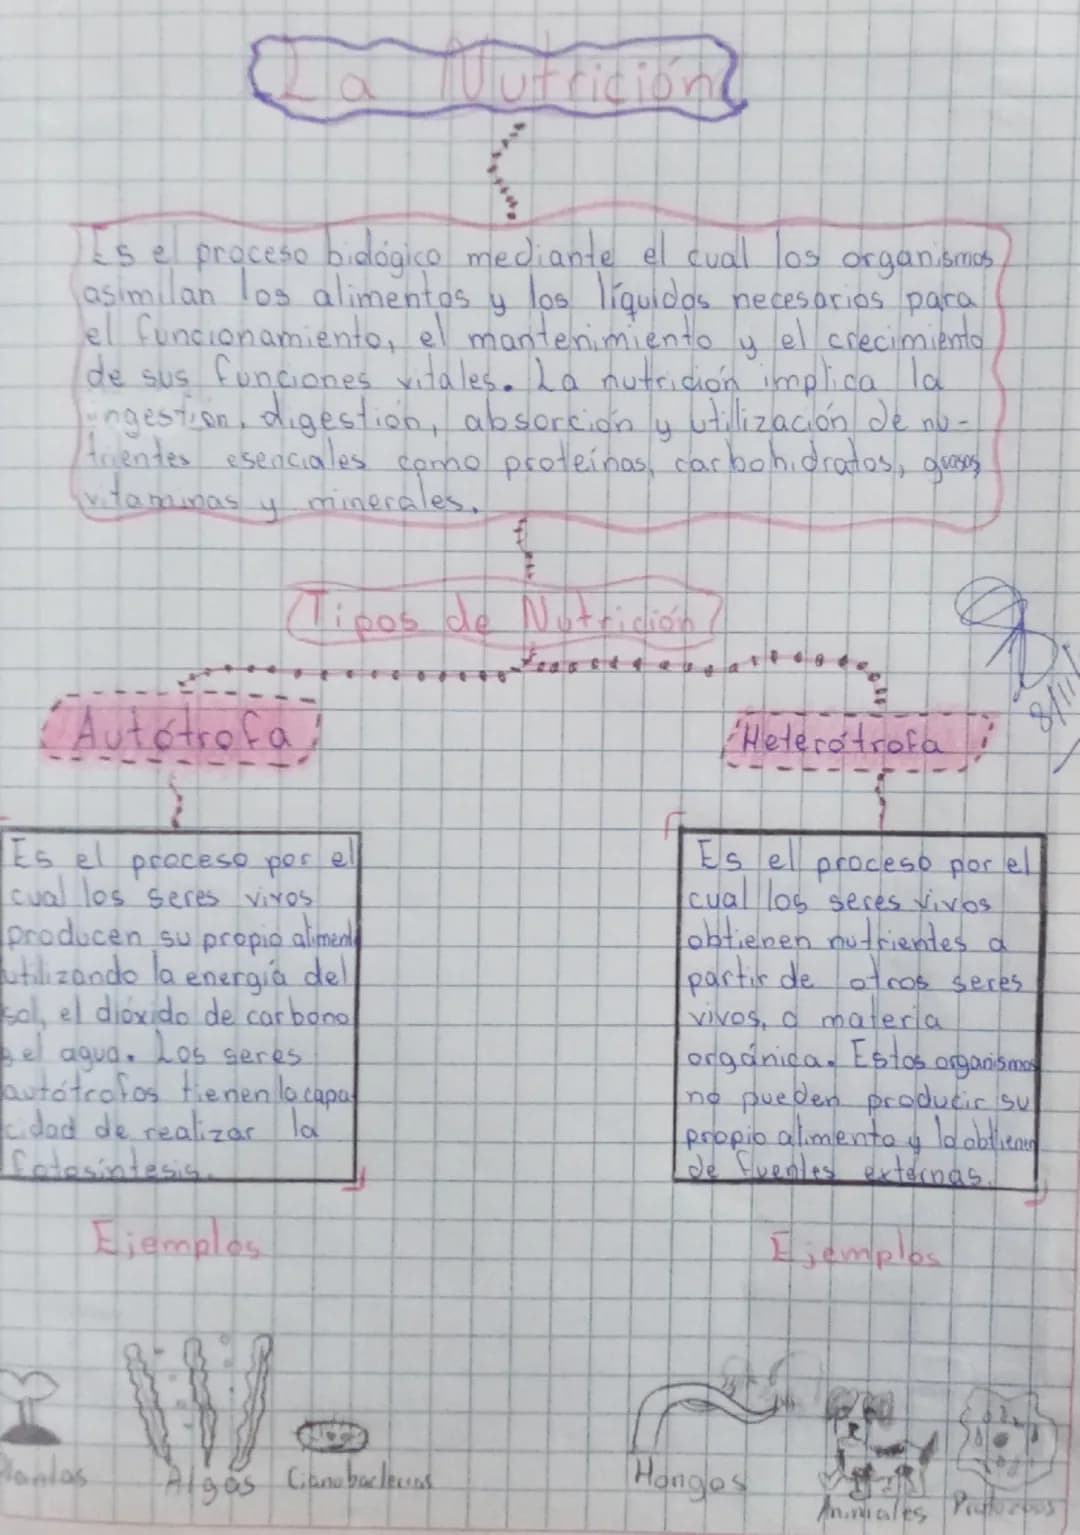 La Nutrición
Es el proceso biológico mediante el cual los organismos
asimilan los alimentos y los líquidos necesarios para
el funcionamiento, el mantenimiento y el crecimiento
de sus funciones vitales. La nutrición implica la
ingestión, digestión, absorción y utilización de nu-
trientes esenciales como proteínas, carbohidratos, grasas
vitaminas y minerales.
Tipos de Nutrición
8/11
Autótrofa
Heterótrofa
Es el proceso por el
cual los seres vivos
producen su propio aliment
utilizando la energía del
sol, el dióxido de carbono
y el agua. Los seres
autótrofos tienen la capa
cidad de realizar la
fotosíntesis.
Es el proceso por el
cual los seres vivos
obtienen nutrientes a
partir de otros seres
vivos, o materia
orgánica. Estos organismos
no pueden producir su
propio alimento y lo obtienen
de fuentes externas.
Ejemplos
Ejemplos
Plantas
Algas
Cianobacterias
Hongos
Animales
Protozoos